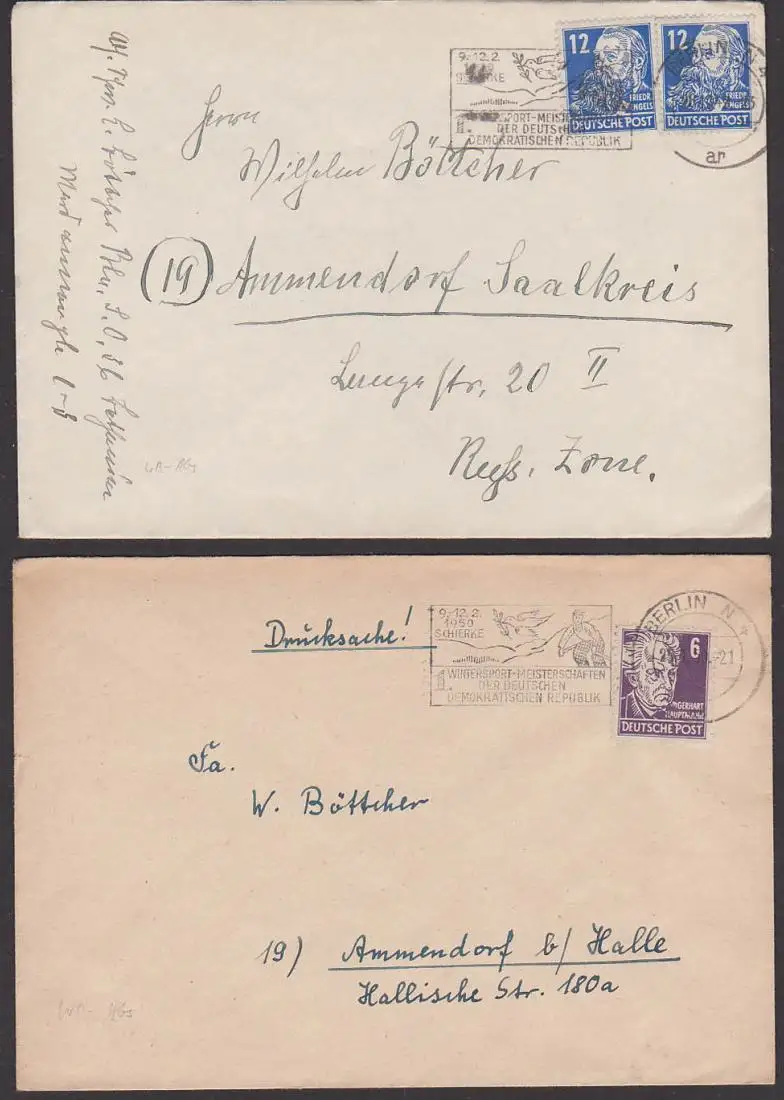 9.-12.2.
SCHIERKE
1. WINTERSPORT-MEISTERSCHAFTEN
DER DEUTSCHEN
DEMOKRATISCHEN REPUBLIK
12
FRIEDR. ENGELS
DEUTSCHE POST
12
FRIEDR. ENGELS
DEUTSCHE POST
BERLIN N 4
ar
Herrn
Wilhelm Böttcher
(19) Ammendorf Saalkreis
Lange Str. 20 II
Russ. Zone.
Drucksache!
9.-12.2.
1950
SCHIERKE
1. WINTERSPORT-MEISTERSCHAFTEN
DER DEUTSCHEN
DEMOKRATISCHEN REPUBLIK
BERLIN N 4
-21
6
GERHART
HAUPTMANN
DEUTSCHE POST
Fa.
W. Böttcher
19) Ammendorf b/ Halle
Hallische Str. 180a